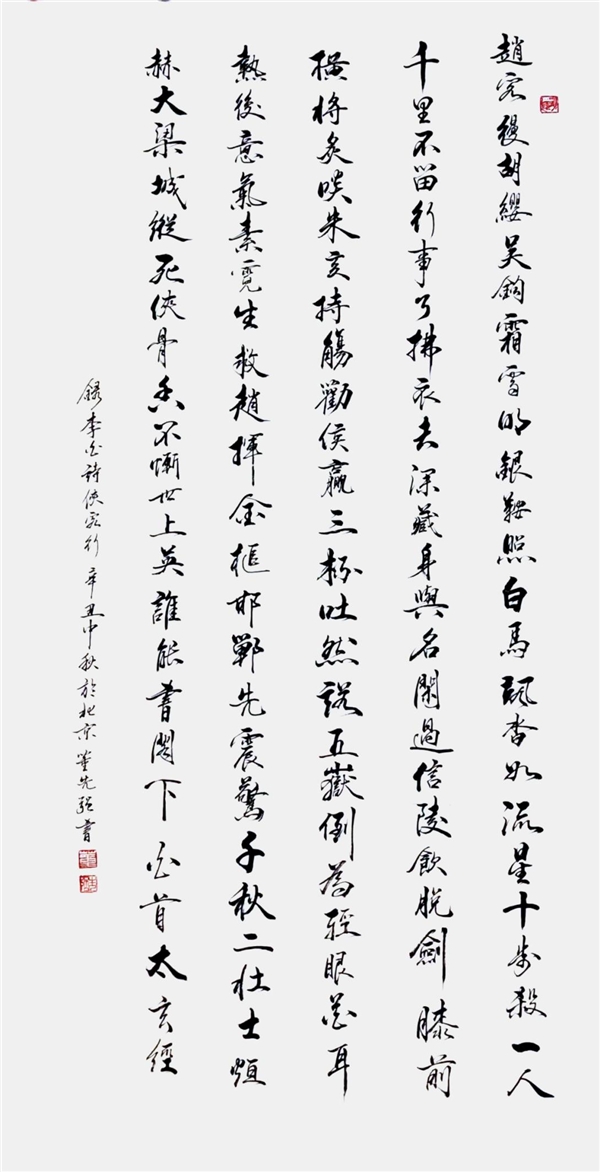 趙客縵胡纓吳鉤霜雪明銀鞍照白馬颯沓如流星十步殺一人
千里不留行事了拂衣去深藏身與名閑過信陵飲脫劍膝前
橫將炙啖朱亥持觴勸侯嬴三杯吐然諾五嶽倒為輕眼花耳
熱後意氣素霓生救趙揮金槌邯鄲先震驚千秋二壯士烜
赫大梁城縱死俠骨香不慚世上英誰能書閣下白首太玄經
錄李白詩俠客行 辛丑中秋於北京 董先強書